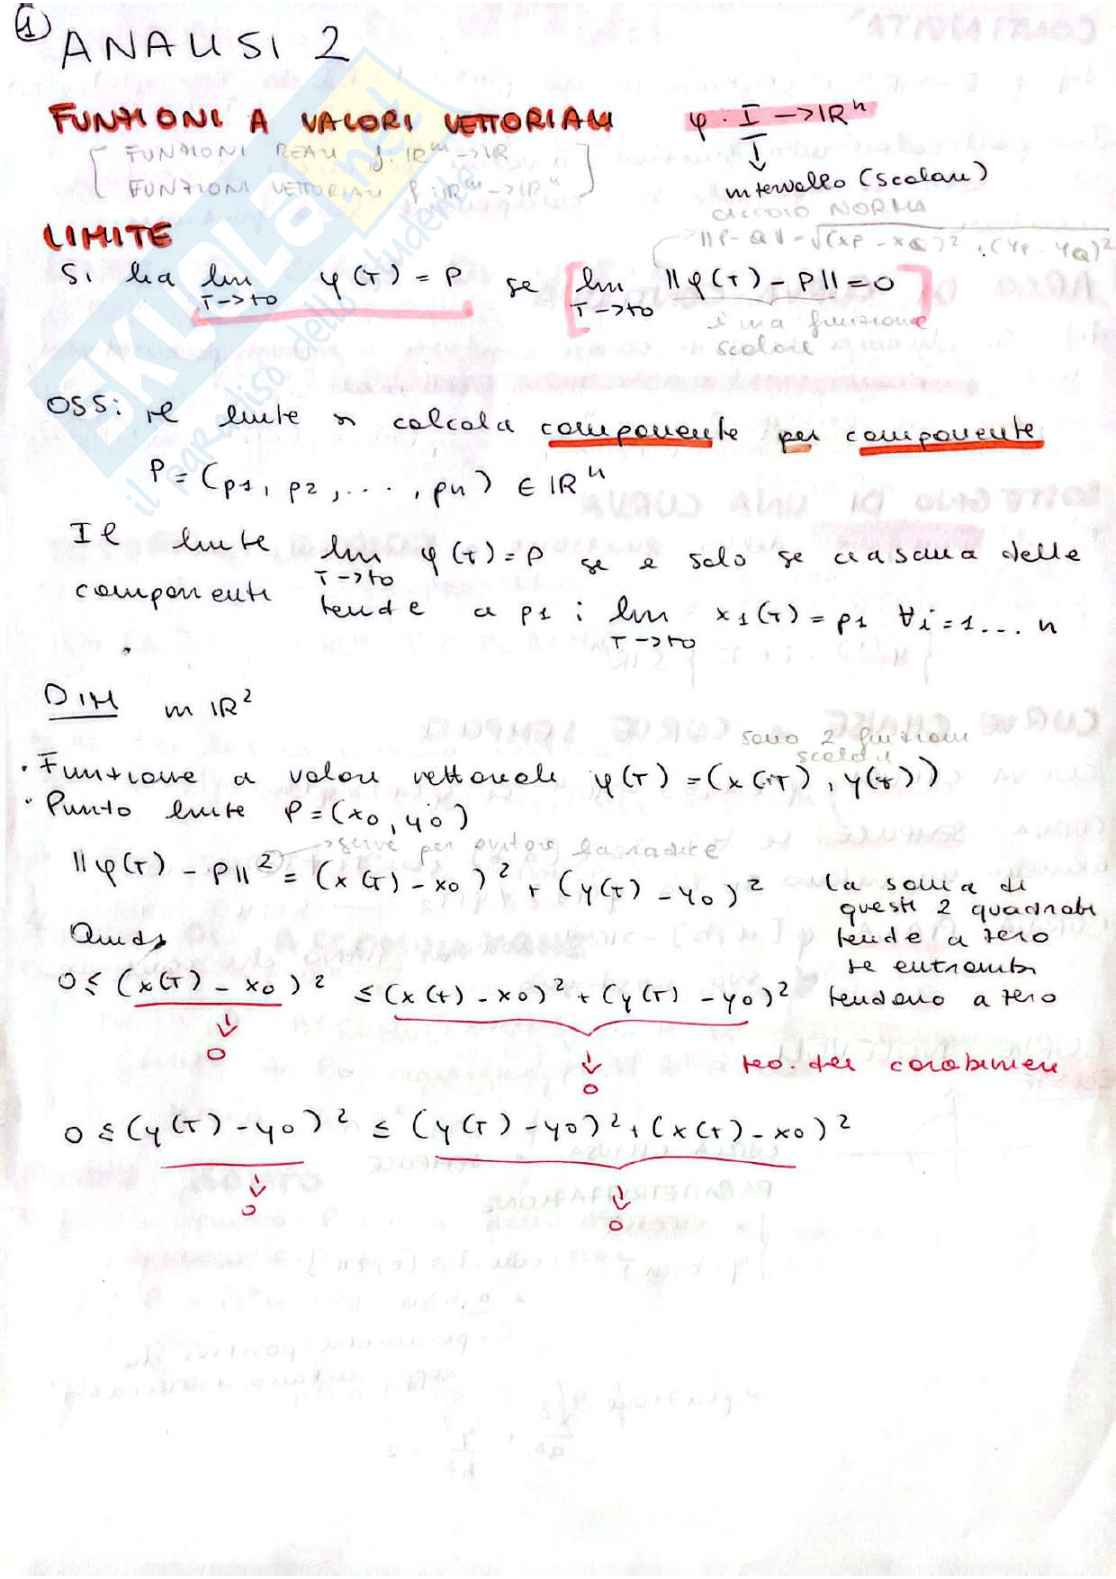 1
ANALISI 2
FUNZIONI A VALORI VETTORIALI φ: I → ℝⁿ
[ FUNZIONI REALI f: ℝᵐ → ℝ
FUNZIONI VETTORIALI f: ℝᵐ → ℝⁿ ]
↓
intervallo (scalare)
CALCOLO NORMA
||P - Q|| = √(xP - xQ)² + (yP - yQ)²
LIMITE
Si ha lim T→t0 φ(T) = P se [ lim T→t0 ||φ(T) - P|| = 0 ]
è una funzione
scalare
OSS: il limite si calcola componente per componente
P = (p1, p2, ..., pn) ∈ ℝⁿ
Il limite lim T→t0 φ(t) = P se e solo se ciascuna delle
componenti tende a p1 : lim T→t0 x1(T) = p1 ∀i = 1... n
DIM in ℝ²
sono 2 funzioni
scalari
• Funzione a valori vettoriali φ(T) = (x(T), y(t))
• Punto limite P = (x0, y0)
→ serve per evitare la radice
||φ(T) - P||² = (x(T) - x0)² + (y(T) - y0)² la somma di
questi 2 quadrati
tende a zero
se entrambi
tendono a zero
Quindi
0 ≤ (x(T) - x0)² ≤ (x(t) - x0)² + (y(T) - y0)²
↓
0
↓
0
teo. dei carabinieri
0 ≤ (y(T) - y0)² ≤ (y(T) - y0)² + (x(t) - x0)²
↓
0
↓
0
SKUOLA.net
il paradiso dello studente